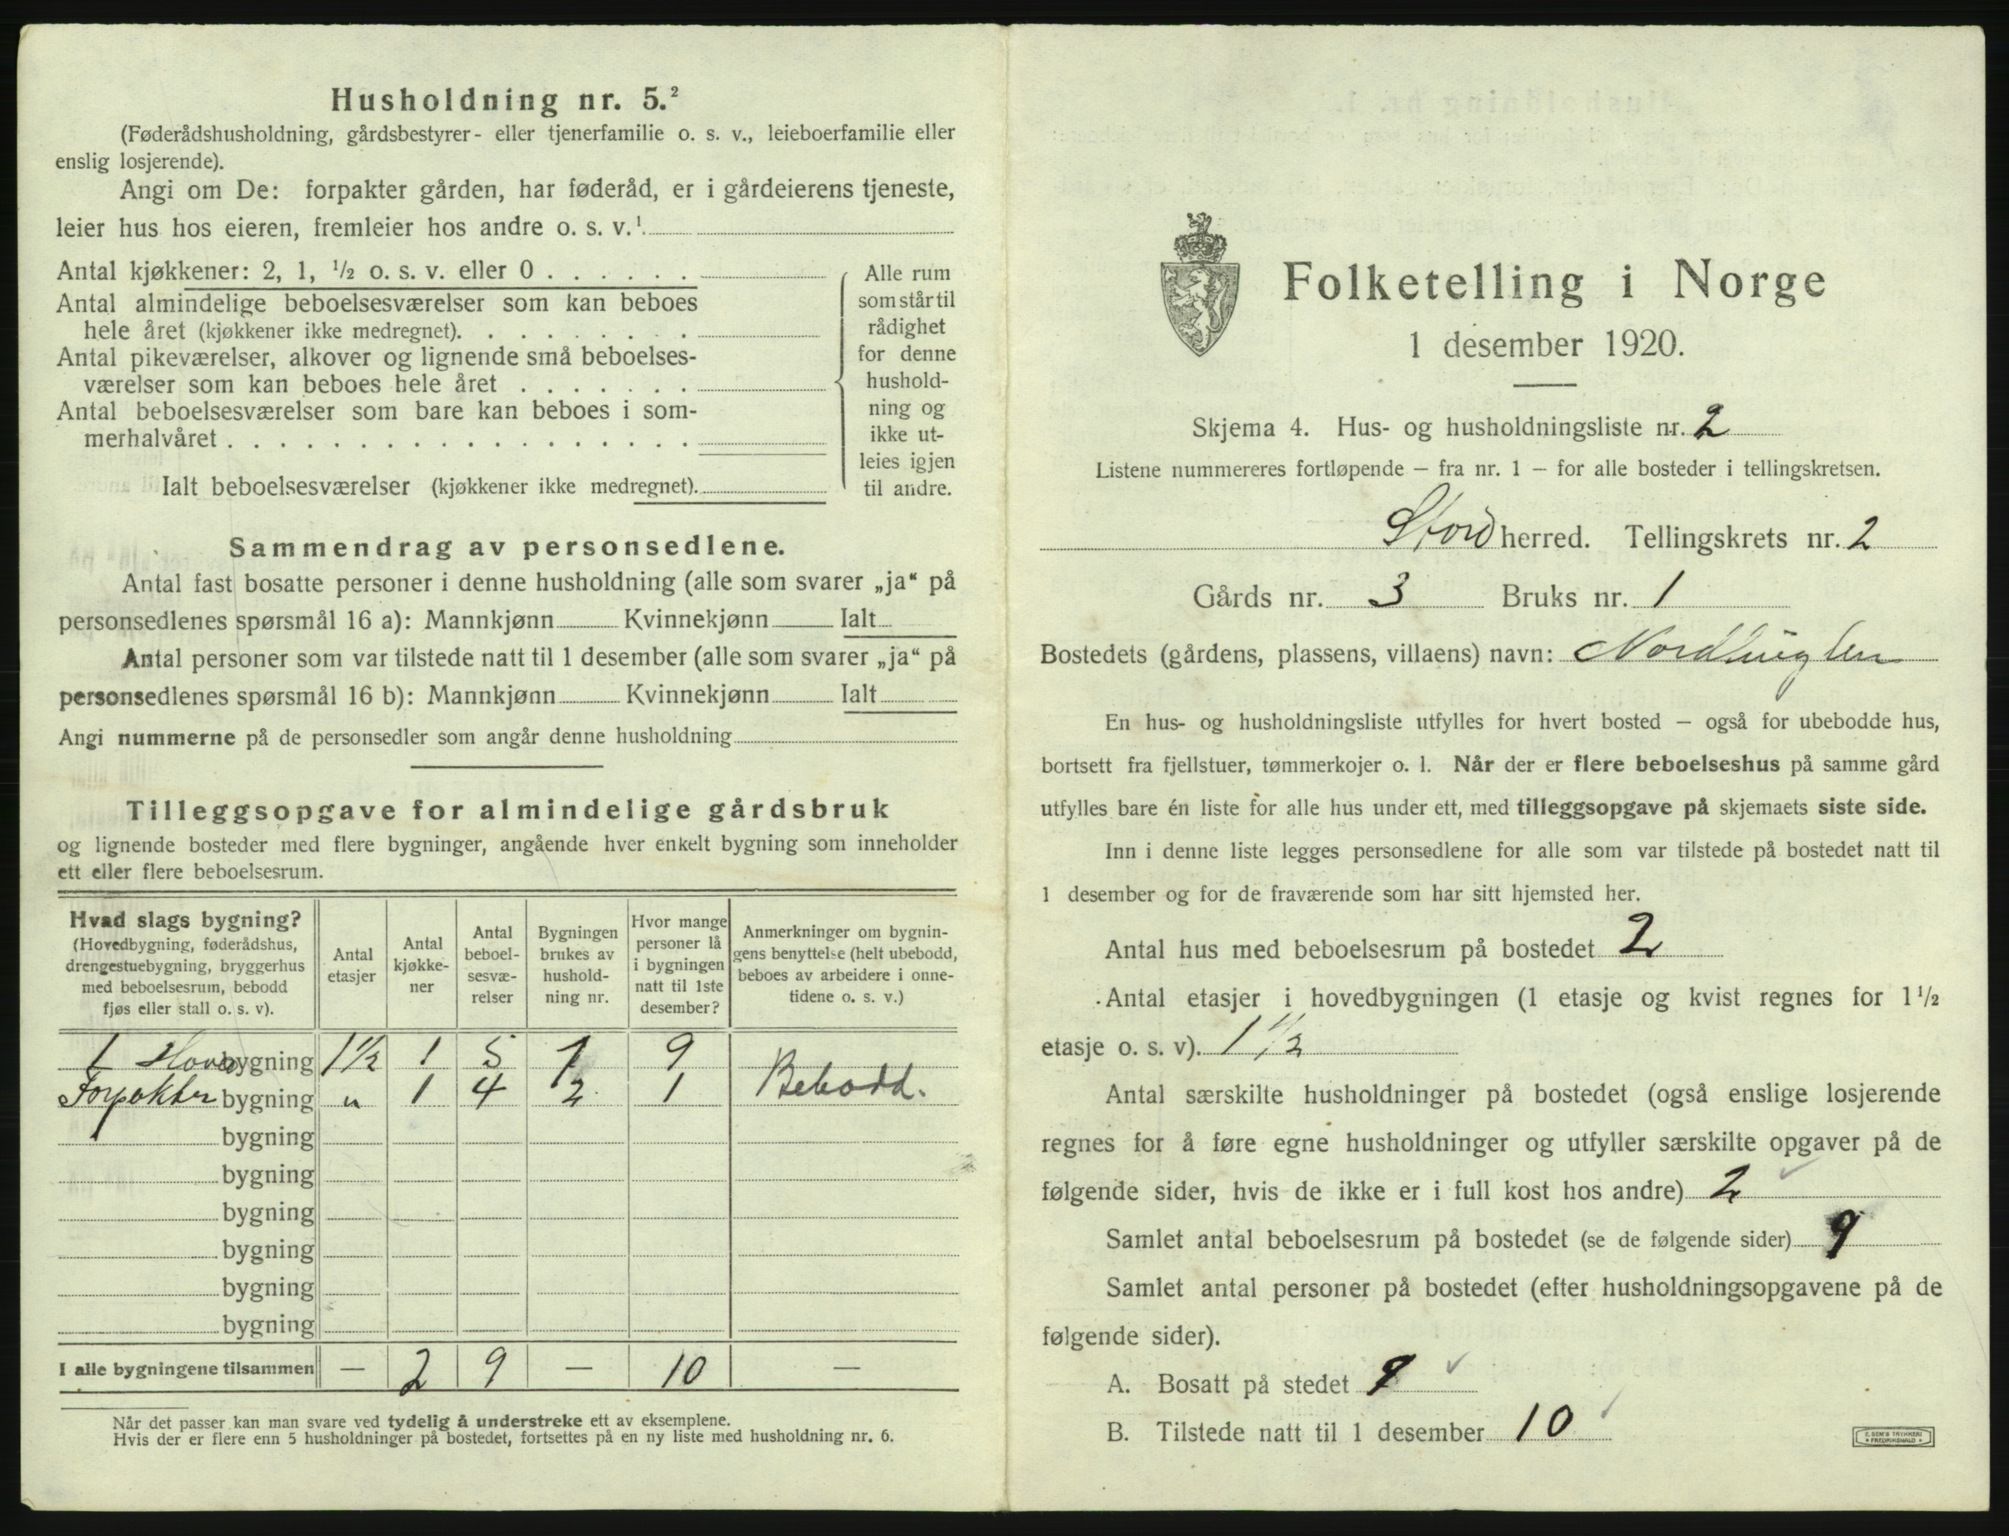 Husholdning nr. 5.²
(Føderådshusholdning, gårdsbestyrer- eller tjenerfamilie o. s. v., leieboerfamilie eller
enslig losjerende).
Angi om De: forpakter gården, har føderåd, er i gårdeierens tjeneste,
leier hus hos eieren, fremleier hos andre o. s. v.¹
Antal kjøkkener: 2, 1, ½ o. s. v. eller 0
Antal almindelige beboelsesværelser som kan beboes
hele året (kjøkkener ikke medregnet).
Antal pikeværelser, alkover og lignende små beboelses-
værelser som kan beboes hele året
Antal beboelsesværelser som bare kan beboes i som-
merhalvåret
Ialt beboelsesværelser (kjøkkener ikke medregnet).
Alle rum
som står til
rådighet
for denne
hushold-
ning og
ikke ut-
leies igjen
til andre.
Sammendrag av personsedlene.
Antal fast bosatte personer i denne husholdning (alle som svarer „ja“ på
personsedlenes spørsmål 16 a): Mannkjønn Kvinnekjønn Ialt
Antal personer som var tilstede natt til 1 desember (alle som svarer „ja“ på
personsedlenes spørsmål 16 b): Mannkjønn Kvinnekjønn Ialt
Angi nummerne på de personsedler som angår denne husholdning
Tilleggsopgave for almindelige gårdsbruk
og lignende bosteder med flere bygninger, angående hver enkelt bygning som inneholder
ett eller flere beboelsesrum.
Hvad slags bygning?
(Hovedbygning, føderådshus,
drengestuebygning, bryggerhus
med beboelsesrum, bebodd
fjøs eller stall o. s. v).
Antal
etasjer
Antal
kjøkke-
ner
Antal
beboel-
sesvæ-
relser
Bygningen
brukes av
hushold-
ning nr.
Hvor mange
personer lå
i bygningen
natt til 1ste
desember?
Anmerkninger om bygnin-
gens benyttelse (helt ubebodd,
beboes av arbeidere i onne-
tidene o. s. v.)
1 Hovedbygning 1½ 1 5 1 9
Forpakter bygning " 1 4 2 1 Bebodd.
bygning
bygning
bygning
bygning
bygning
bygning
I alle bygningene tilsammen — 2 9 — 10 —
Når det passer kan man svare ved tydelig å understreke ett av eksemplene.
Hvis der er flere enn 5 husholdninger på bostedet, fortsettes på en ny liste med husholdning nr. 6.
Folketelling i Norge
1 desember 1920.
Skjema 4. Hus- og husholdningsliste nr. 2
Listene nummereres fortløpende — fra nr. 1 — for alle bosteder i tellingskretsen.
Stord herred. Tellingskrets nr. 2
Gårds nr. 3 Bruks nr. 1
Bostedets (gårdens, plassens, villaens) navn:
En hus- og husholdningsliste utfylles for hvert bosted — også for ubebodde hus,
bortsett fra fjellstuer, tømmerkojer o. l. Når der er flere beboelseshus på samme gård
utfylles bare én liste for alle hus under ett, med tilleggsopgave på skjemaets siste side.
Inn i denne liste legges personsedlene for alle som var tilstede på bostedet natt til
1 desember og for de fraværende som har sitt hjemsted her.
Antal hus med beboelsesrum på bostedet 2
Antal etasjer i hovedbygningen (1 etasje og kvist regnes for 1½
etasje o. s. v). 1½
Antal særskilte husholdninger på bostedet (også enslige losjerende
regnes for å føre egne husholdninger og utfyller særskilte opgaver på de
følgende sider, hvis de ikke er i full kost hos andre) 2
Samlet antal beboelsesrum på bostedet (se de følgende sider) 9
Samlet antal personer på bostedet (efter husholdningsopgavene på de
følgende sider).
A. Bosatt på stedet 9
B. Tilstede natt til 1 desember 10